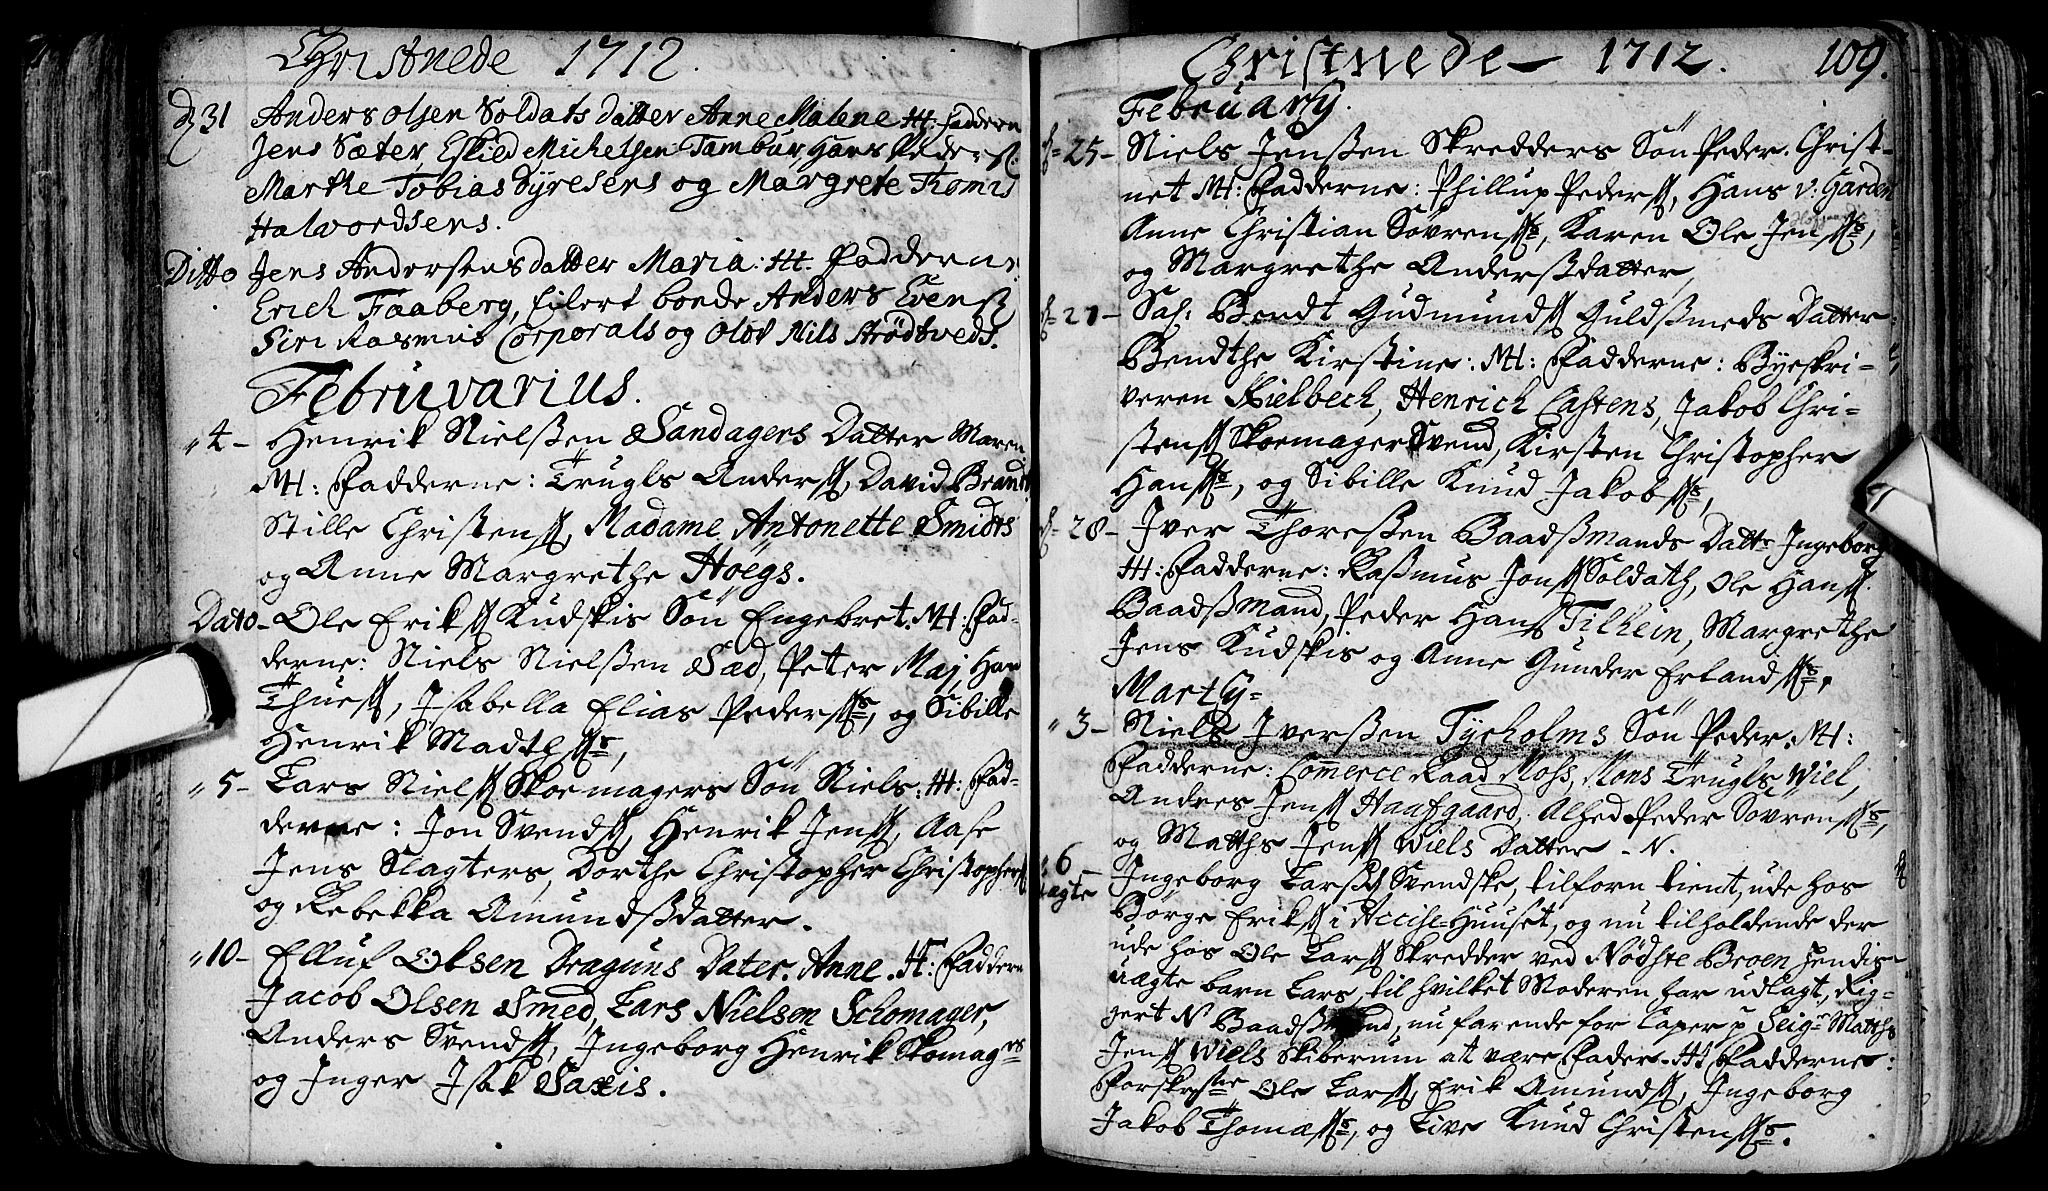 Christnede 1712.
d 31 Anders Olsen Soldats datter Anne Malene H: faddern
Jens Sæter, Eskied Michelsen Tambur Hans Peders:
Marthe Tobias Syresens og Margrete Thomis
Halvordsens.
Ditto Jens Andersens datter Maria: H. Faddern:
Erich Faaberg, Eilert bonde Anders Evens
Siri Rasmus Corporals og Olov Nils Strödtveds.
Februvarius.
" 4 - Henrik Nielsßen Sandagers Datter Maren
MH: Fadderne: Trugls Anders, David Brandt
Stille Christens, Madame Antonette Smidts
og Anne Margrethe Höegs.
Dato - Ole Eriks Kudskis Sön Engebret. MH: Fad-
derne: Niels Nielßen Sæd, Peter Maj, Han
Thues, Isabella Elias Pederss, og Sibille
Henrik Madthss,
" 5 - Lars Niels Skoemagers Sön Niels: H: Fad-
derne: Jon Svends, Henrik Jens, Aase
Jens Slagters, Dorthe Christopher Christophers
og Rebekka Amundsßdatter.
" 10 - Elluf Olsen Draguns Dater. Anne. H: Faddern
Jacob Olsen Smed, Lars Nielsen Schomager,
Anders Svends, Ingeborg Henrik Skomagrs
og Inger Isak Saxis.
Christnede - 1712. 109.
February.
d= 25 - Niels Jensßen Skredders Sön Peder. Christ-
net MH: Fadderne: Phillup Peders, Hans v: Garden
Anne Christian Sövrenss, Karen Ole Jenss,
og Margrethe Andersßdatter,
d= 27 - Sal: Berdt Gudmunds Guldsmeds Datter
Bendthe Kirstine: MH: Fadderne: Byeskri-
veren Kielbech, Henrich Castens, Jakob Chri-
stens Skoemager Svend, Kirsten Christopher
Hanss, og Sibille Knud Jakobss,
d= 28 - Iver Thoresßen Baadsmands Dattr Ingeborg
H: Fadderne: Rasmus Jons Soldath, Ole Hans
Baadsmand, Peder Hans Tilhein, Margrethe
Jens Kudskis og Anne Gunder Erlandss,
Marty=
" 3 - Niels Iversßen Tyeholms Sön Peder: MH:
Fadderne: Commerce Raad Moss, Mons Trugls Wiel,
Andres Jens Haafgaard, Alhed Peder Sövrenss,
og Matths Jens Wiels Datter - N.
" 6 - Ingeborg Larsd Svendske, tilforn tient, ude hos
uægte Börge Eriks i Accise-Huuset, og nu tilholdende der
ude hos Ole Lars Skredder ved Nödste Broen hendis
uægte barn Lars, til hvilket Moderen har udlagt, Rig-
gert N Baadsmand, nu farende for Caper p Seigr Matths
Jens Wiels Skiberum at være Fader. H: Fadderne:
Ole Lars, Erik Amunds, Ingeborg
Jakob Thomæss, og Live Knud Christenss.